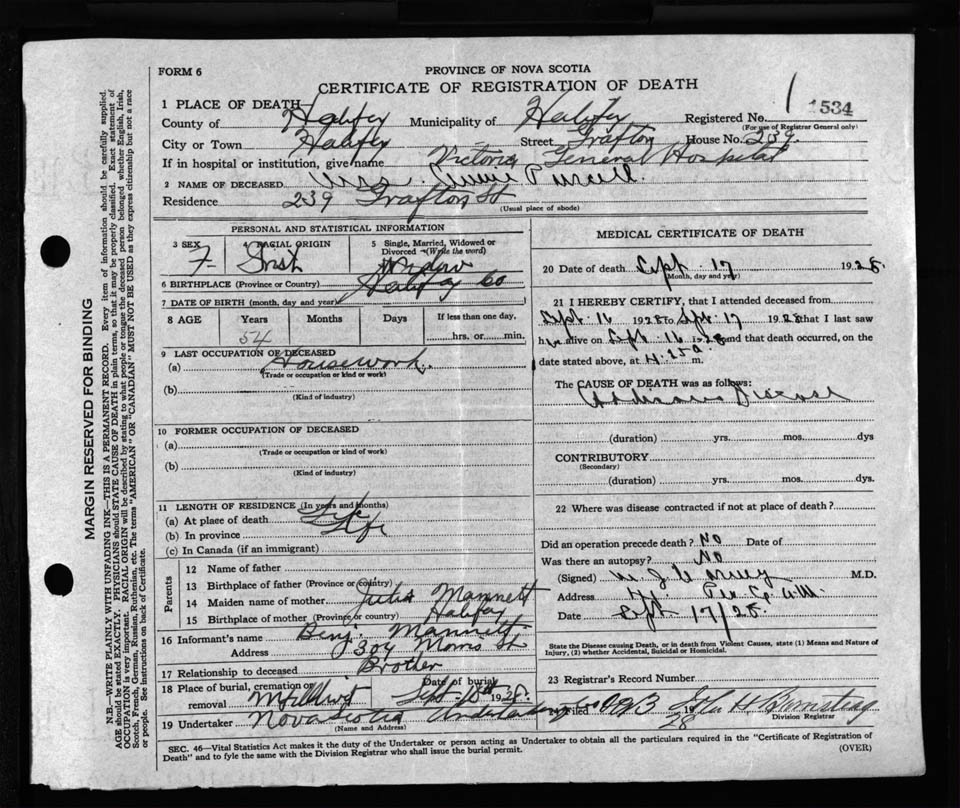 FORM 6
PROVINCE OF NOVA SCOTIA
CERTIFICATE OF REGISTRATION OF DEATH
1 534
1 PLACE OF DEATH—
County of Halifax Municipality of Halifax Registered No.
(For use of Registrar General only)
City or Town Halifax Street Grafton House No. 239
If in hospital or institution, give name Victoria General Hospital
2 NAME OF DECEASED Mrs. Annie Purcell
Residence 239 Grafton St
(Usual place of abode)
PERSONAL AND STATISTICAL INFORMATION
3 SEX F 4 RACIAL ORIGIN Irish 5 Single, Married, Widowed or Divorced (Write the word) Widow
6 BIRTHPLACE (Province or Country) Halifax Co
7 DATE OF BIRTH (month, day and year)
8 AGE Years Months Days If less than one day,
54 hrs. or min.
9 LAST OCCUPATION OF DECEASED
(a) Housework
(Trade or occupation or kind or work)
(b)
(Kind of industry)
10 FORMER OCCUPATION OF DECEASED
(a)
(Trade or occupation or kind of work)
(b)
(Kind of industry)
11 LENGTH OF RESIDENCE (In years and months)
(a) At place of death Life
(b) In province Life
(c) In Canada (if an immigrant)
Parents
12 Name of father
13 Birthplace of father (Province or country)
14 Maiden name of mother Julia Mannett
15 Birthplace of mother (Province or country) Halifax
16 Informant's name Benj. Mannett
Address 304 Morris St
17 Relationship to deceased Brother
18 Place of burial, cremation or removal Mt Olivet Date of burial Sept 1928
19 Undertaker Nova Scotia Undertaking Co
(Name and Address)
MEDICAL CERTIFICATE OF DEATH
20 Date of death Sept 17 1928
(Month, day and year)
21 I HEREBY CERTIFY, that I attended deceased from
Sept 16 1928 to Sept 17 1928 that I last saw
her alive on Sept 16 1928 and that death occurred, on the
date stated above, at 4.25 a. m.
The CAUSE OF DEATH was as follows:
Addisons Disease
(duration) yrs. mos. dys
CONTRIBUTORY
(Secondary)
(duration) yrs. mos. dys.
22 Where was disease contracted if not at place of death?
Did an operation precede death? No Date of
Was there an autopsy? No
(Signed) M.D.
Address
Date Sept 17/28
State the Disease causing Death, or in death from Violent Causes, state (1) Means and Nature of
Injury, (2) whether Accidental, Suicidal or Homicidal.
23 Registrar's Record Number
Filed 19 28
Division Registrar
SEC. 46—Vital Statistics Act makes it the duty of the Undertaker or person acting as Undertaker to obtain all the particulars required in the "Certificate of Registration of
Death" and to fyle the same with the Division Registrar who shall issue the burial permit. (OVER)
MARGIN RESERVED FOR BINDING
N.B.—WRITE PLAINLY WITH UNFADING INK—THIS IS A PERMANENT RECORD. Every item of information should be carefully supplied.
AGE should be stated EXACTLY. PHYSICIANS should STATE CAUSE OF DEATH in plain terms, so that it may be properly classified. Exact statement of
OCCUPATION is very important. RACIAL ORIGIN will be described by stating to what people or tongue the deceased person belonged whether English, Irish,
Scotch, French, German, Russian, Ruthenian, etc. The terms "AMERICAN" OR "CANADIAN" MUST NOT BE USED as they express citizenship but not a race
or people. See instructions on back of Certificate.